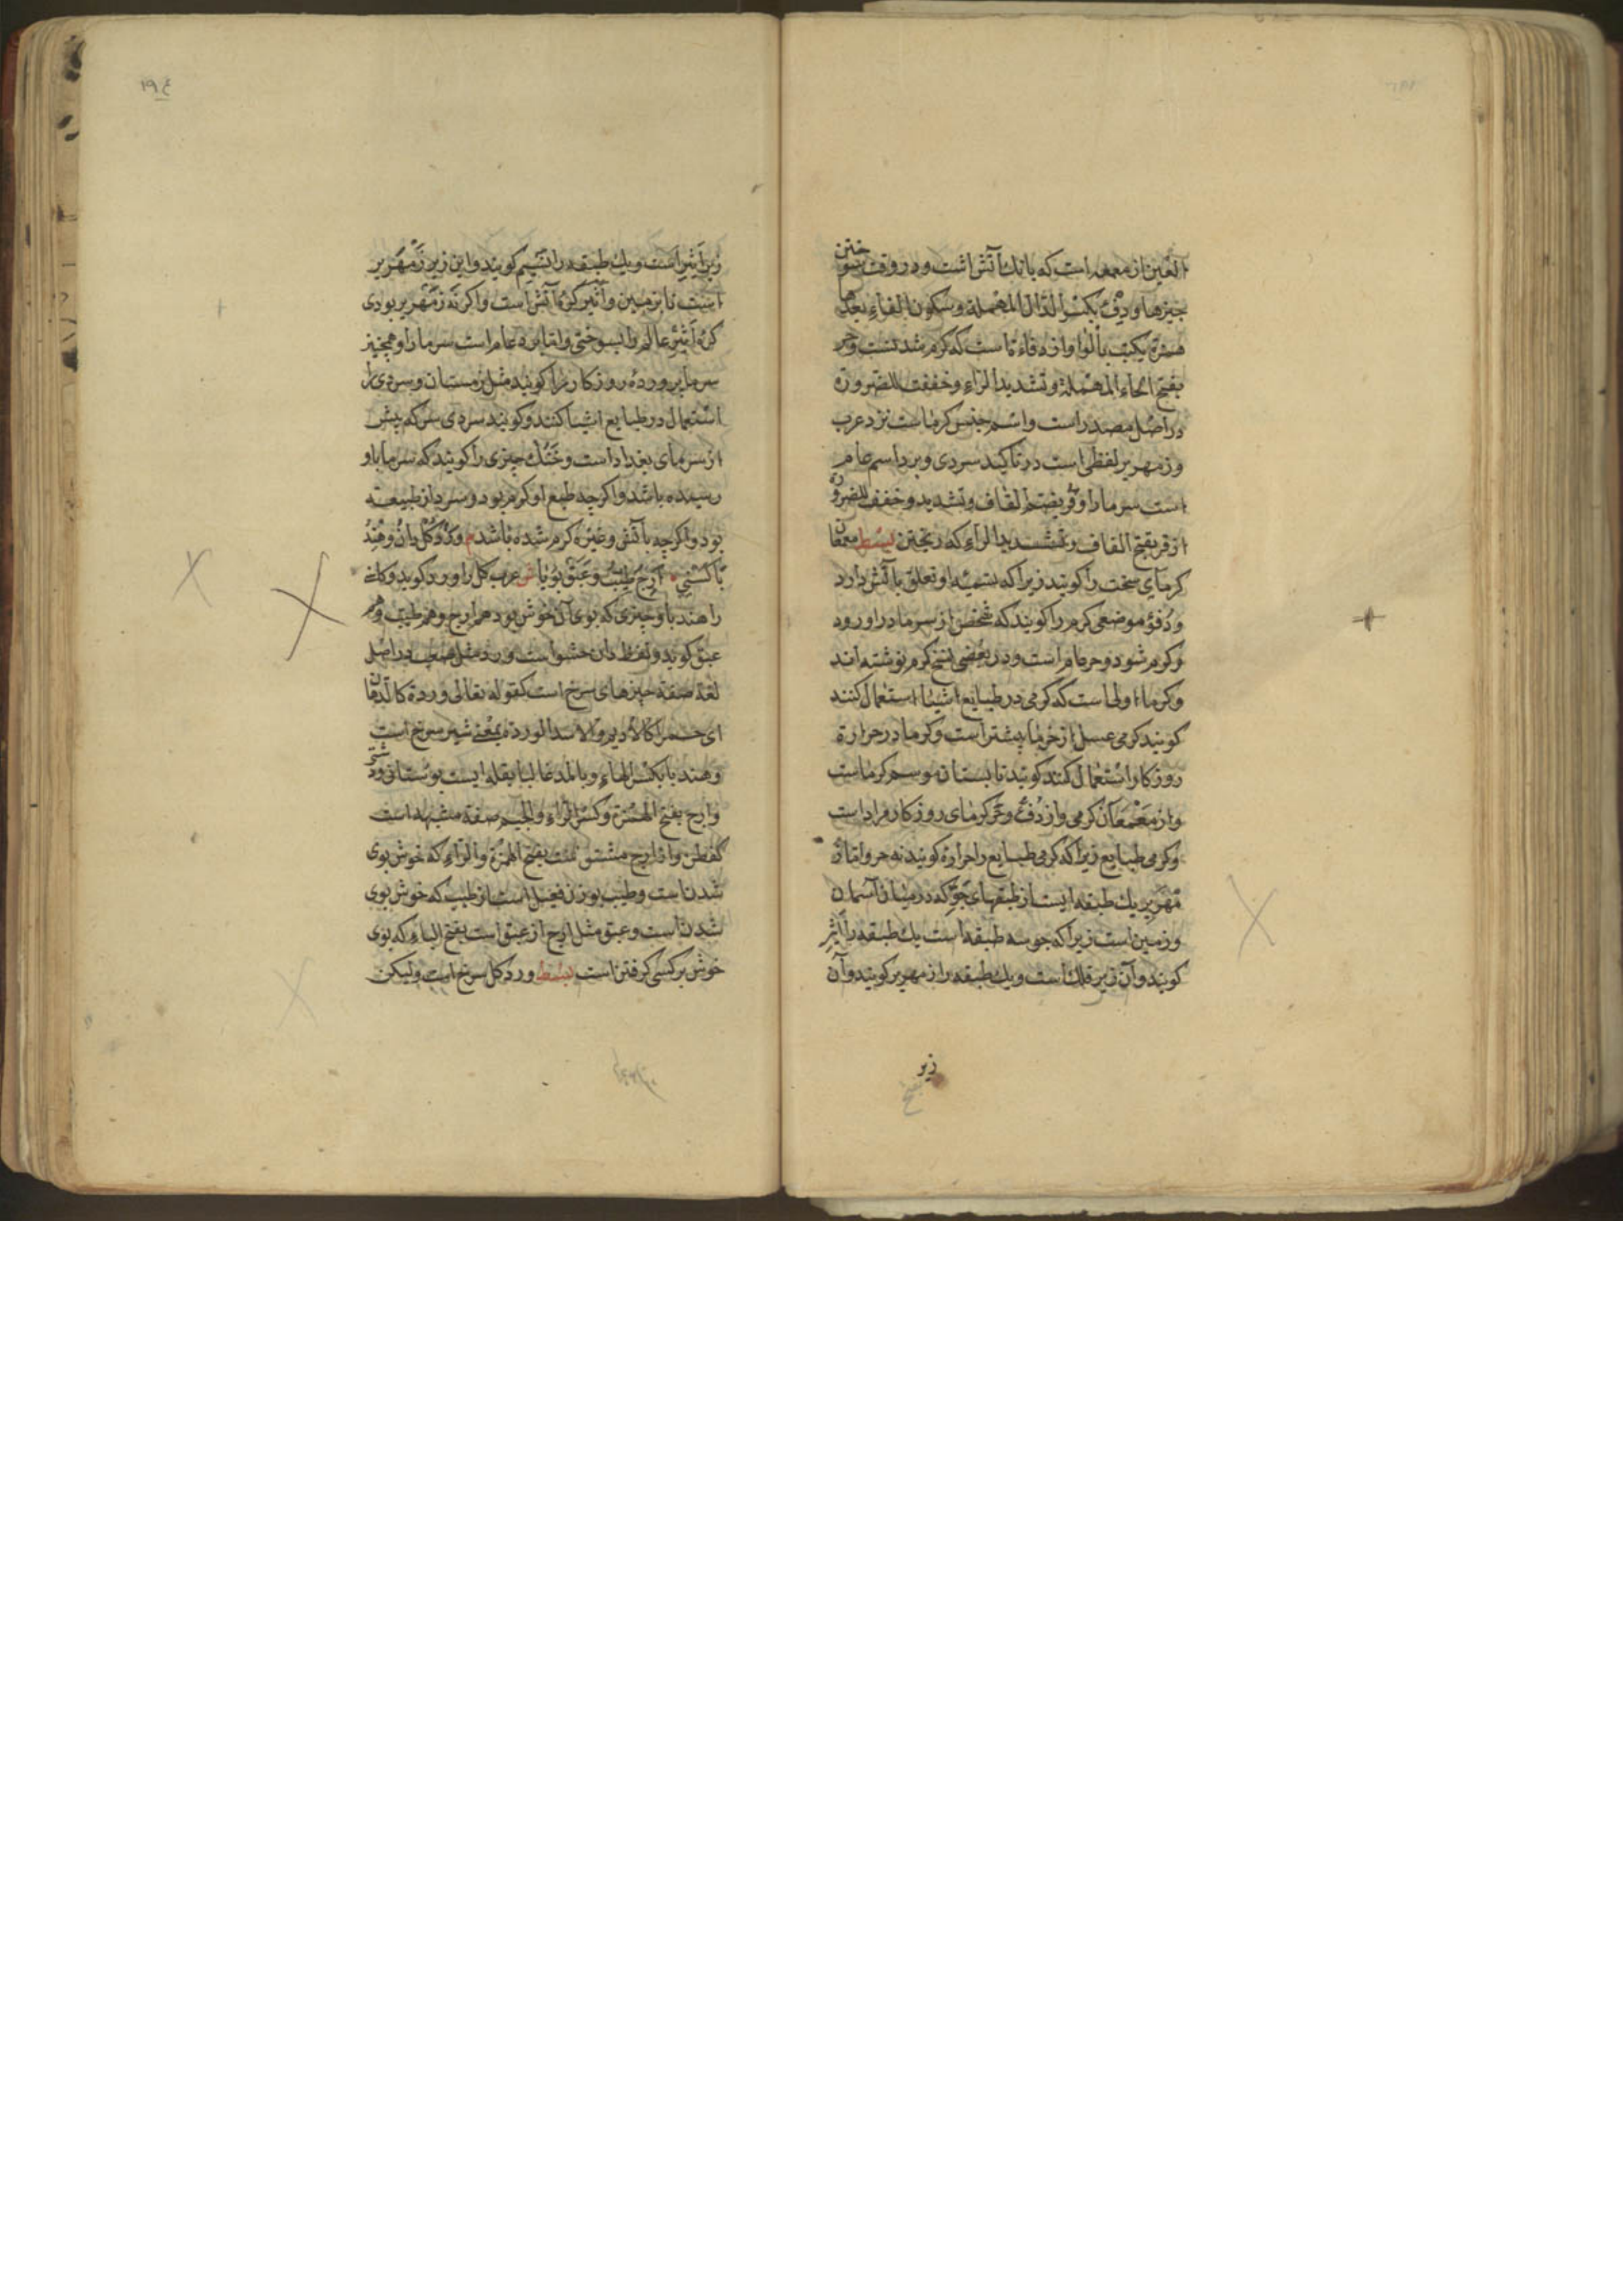 العین از معمعه است که بانك آتش است و در وقت سوختن
چیزها و دِفْ بکسر الدّال المهملة وسکون الفاء بعدها
همزة یکتب بالواو از دفاءتاست که کرم شدنست وحر
بفتح الحاء المهملة وتشدید الرّاء وخففت للضرورة
در اصل مصدر است واسم جنس کرماست نزد عرب
وزمهریر لفظی است در تاکید سردی وبرد اسم عام
است سرما را وقر بفتح القاف وتشدید وخفف للضرورة
از قر بفتح القاف وتشدید الراء که ریختن بسط معمعان
کرمای سخت را کویند زیرا که بتسمیه او تعلق بآتش دارد
ودفؤ موضعی کرم را کویند که شخص از سرما در او رود
وکرم شود وحر عام است ودر بعضی نسخ کرم نوشته اند
وکرما اولی است که کرمی در طبایع اشیاء استعمال کنند
کویند کرمی عسل از خرما بیشتر است وکرما در حرارة
روزکار استعمال کنند کویند تابستان موسم کرماست
واز معمعان کرمی واز دفْ وحر کرمای روزکار مراد است
وکرمی طبایع زیرا که کرمی طبایع را حرارة کویند نه حر واما ز
مهریر یك طبقه ایست از طبقهای جوّ که در میان آسمان
وزمین است زیرا که جو سه طبقه است یك طبقه را اثیر
کویند وآن زیر فلك است ویك طبقه را زمهریر کویند وآن
زیر
۱۹٤
زیر اثیر است ویك طبقه را نسیم کویند واین زیر زمهریر
است تا بزمین واثیر کرۀ آتش است واکر نه زمهریر بودی
کرۀ اثیر عالم را بسوختی واما برد عام است سرما را وهمچنیز
سرما برودۀ روزکار را کویند مثل زمستان وسردی را
استعمال در طبایع اشیا کنند وکویند سردی سرکه بیش
از سرمای بغداد است وخنك چیزی را کویند که سرما باو
رسیده باشد واکر چه طبع او کرم بود وسرد از طبیعت
بود واکر چه بآتش وغیره کرم شده باشد م ورْدْ وکُل بان وهِنْدُ
باکسْنی ٭ اَرِجْ طیّبْ وعَبَق بُوْیا ش عرب کل را ورد کوید وکاسنی
را هندبا وچیزی که بوی آن خوش بود هم ارج وهم طیب وهم
عبق کوید ولفظ دان حشو است وورد مثل صعب در اصل
لغة صفة چیزهای سرخ است کقوله تعالی وردة کالدّهان
ای حمرا کالادیم والاسد الورد بمعنی شیر سرخ است
وهندبا بکسر الهاء وبالمد غالبا بقله ایست بوستانی ودشتی
وارج بفتح الهمزة وکسر الرّاء والجیم صفة مشبهه است
کفطن واز ارج مشتق است بفتح الهمزة والرّاء که خوش بوی
شدن است وطیب بوزن فیعل است از طیب که خوش بوی
شدن است وعبق مثل ارج از عبق است بفتح الباء که بوی
خوش بر کسی کرفتن است بسط ورد کل سرخ است ولیکن